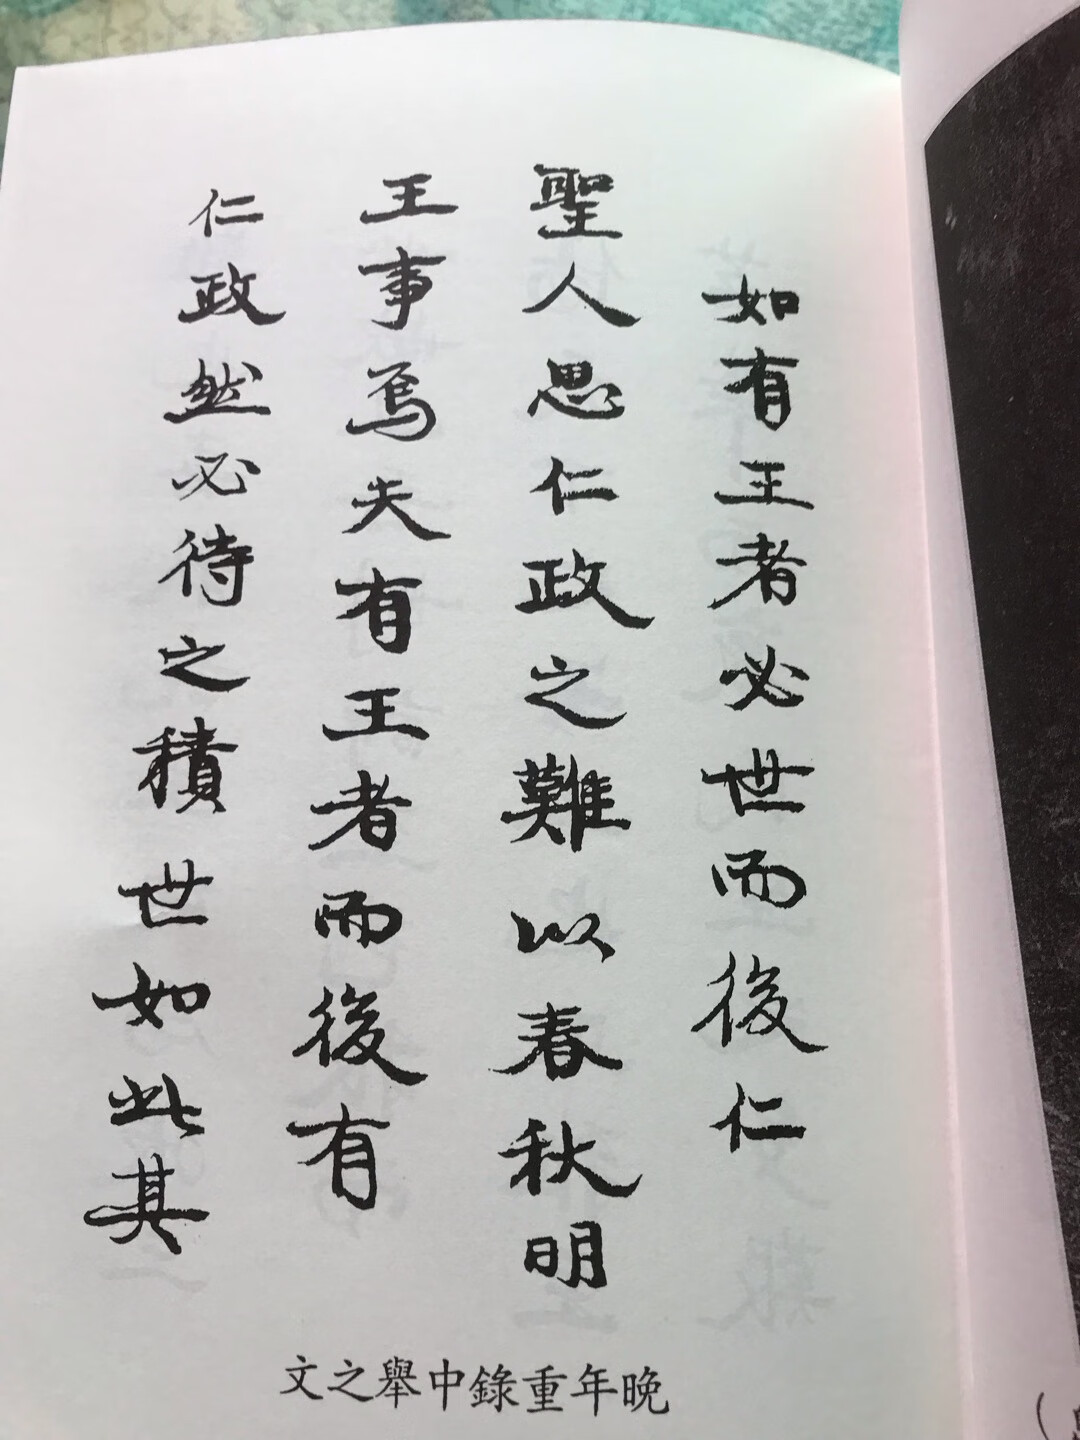 如有王者必世而後仁
聖人思仁政之難以春秋明
王事焉夫有王者而後有
仁政然必待之積世如此其
晚年重錄中舉之文